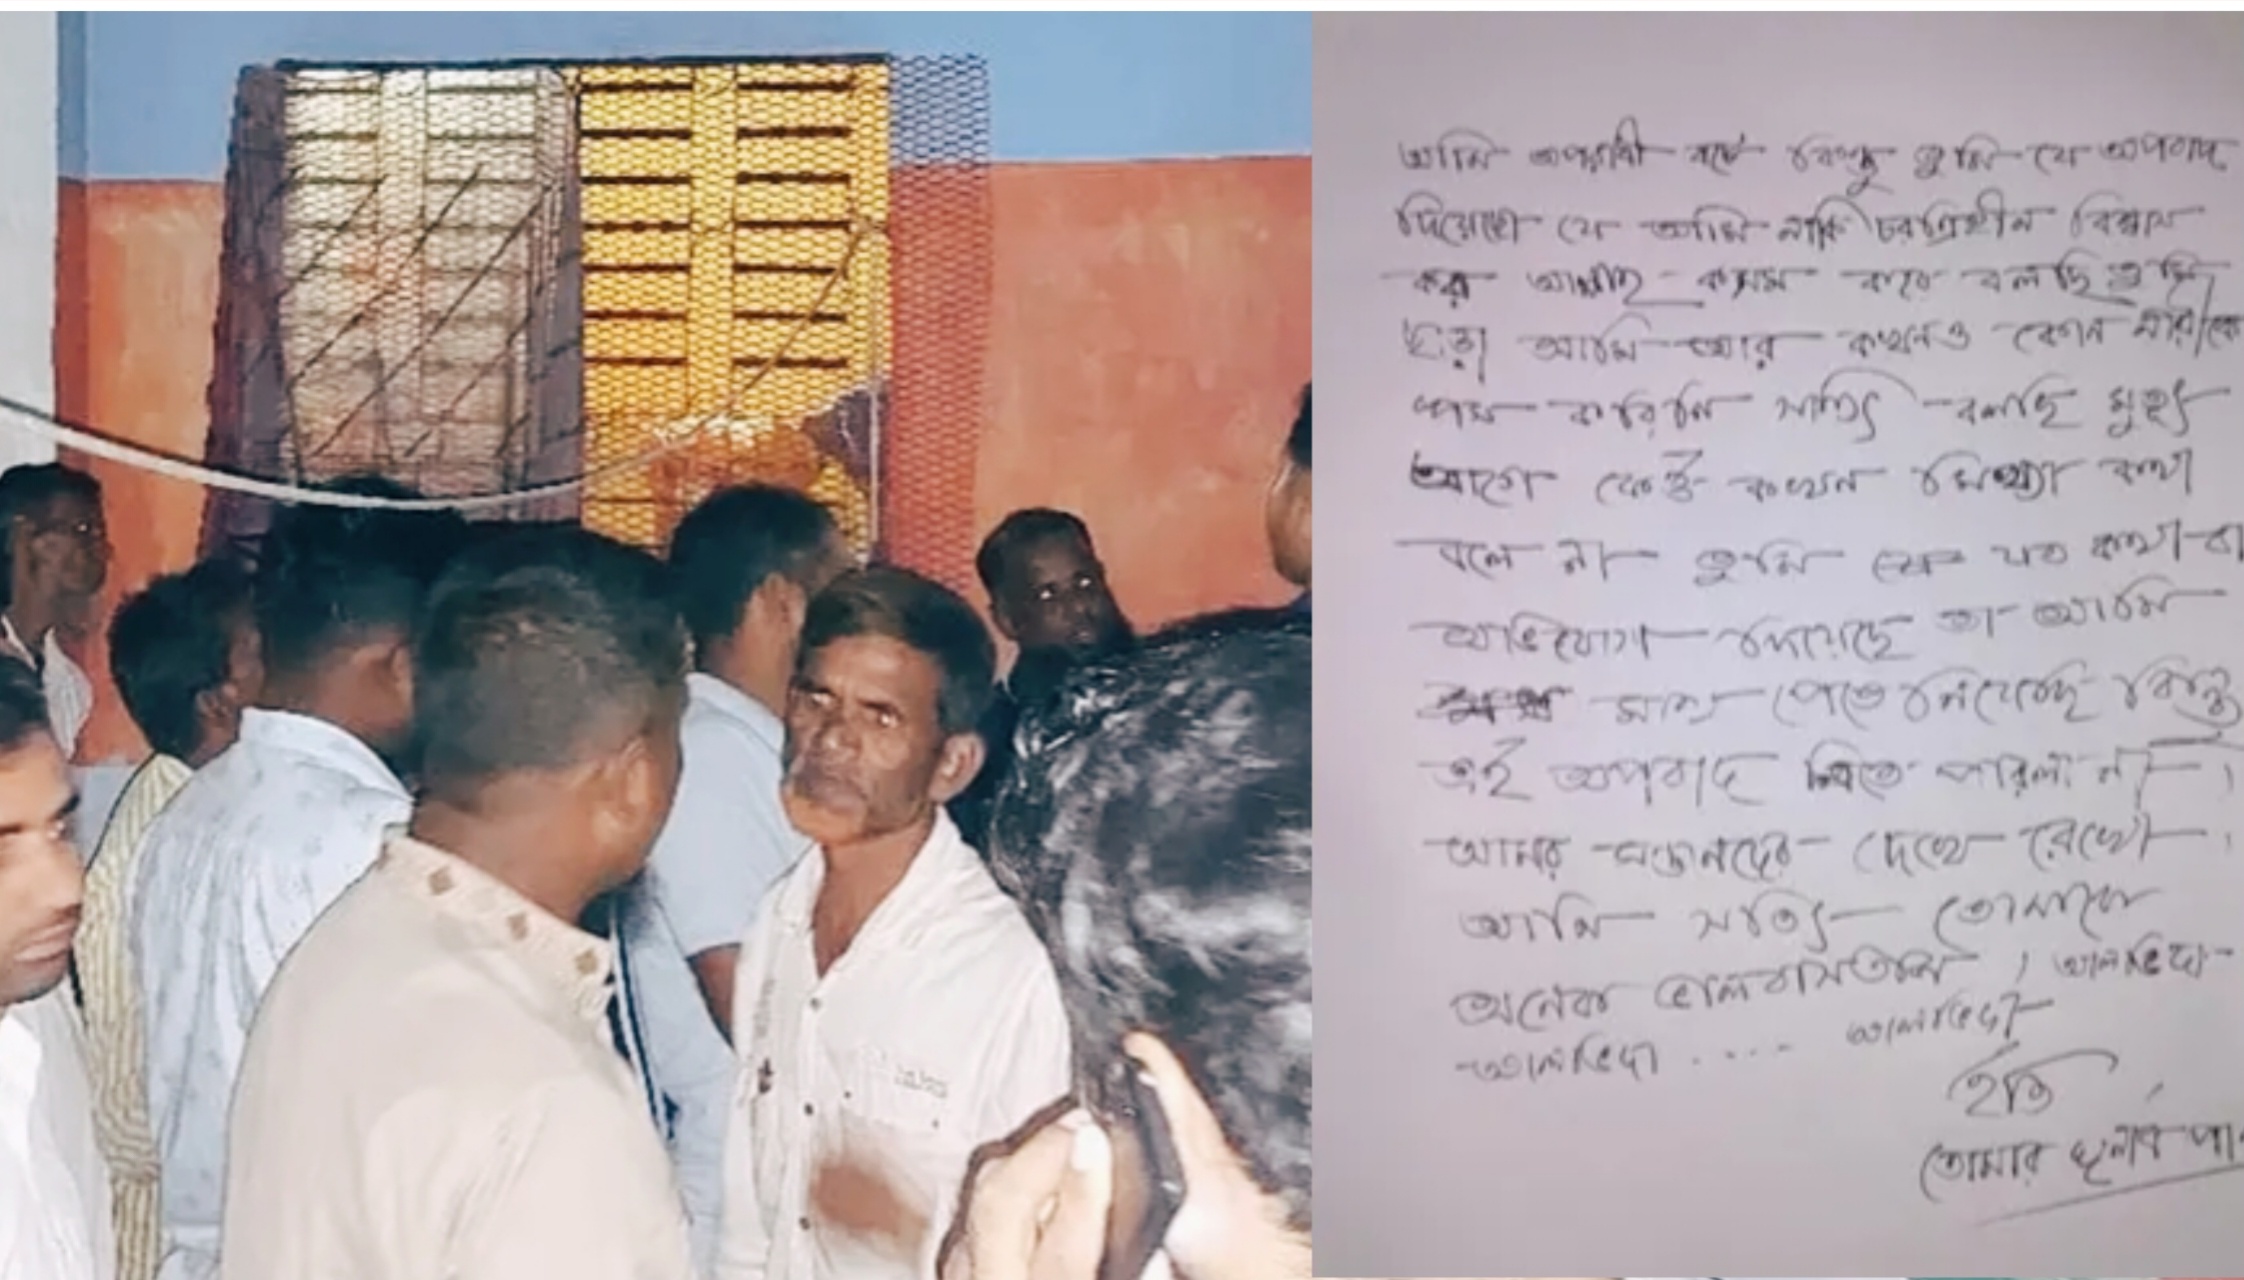 আমি অপরাধী বটে কিন্তু তুমি যে অপবাদ
দিয়েছো যে আমি নাকি চরিত্রহীন বিশ্বাস
কর আল্লাহ কসম করে বলছি তুমি
ছাড়া আমি আর কখনও কোন নারীকে
করিনি সত্যি বলছি মৃত্যুর
আগে কেউ কখন মিথ্যা কথা
বলে না তুমি যে যত কথা বা
অভিযোগ দিয়েছে তা আমি
মাথা পেতে নিয়েছি কিন্তু
এই অপবাদ নিতে পারলাম না।
আমার সন্তানদের দেখে রেখো।
আমি সত্যি তোমাকে
অনেক ভালবাসতাম। আলবিদা
আলবিদা .... আলবিদা
ইতি
তোমার ঘৃনার